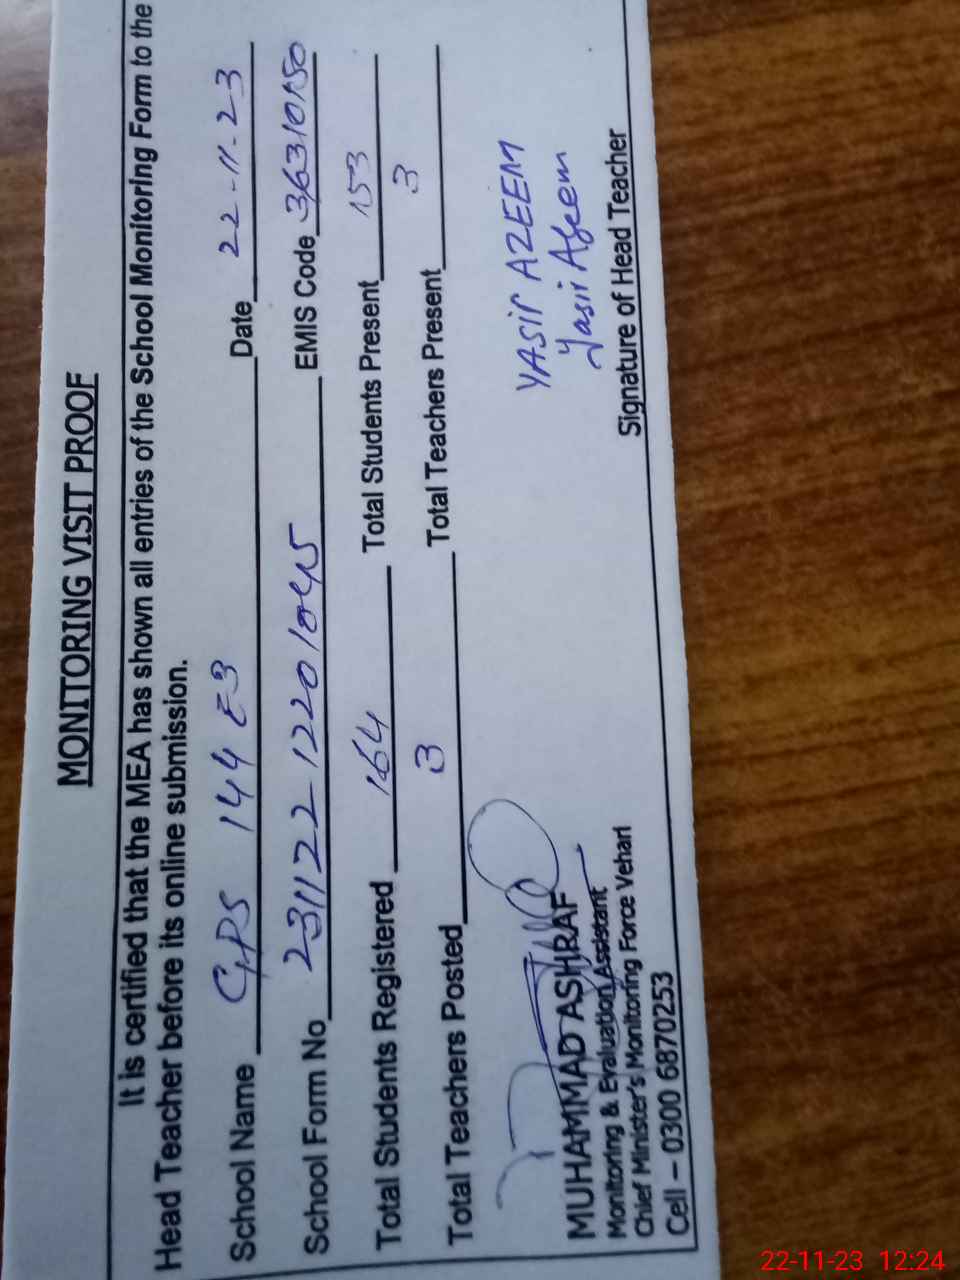 MONITORING VISIT PROOF
It is certified that the MEA has shown all entries of the School Monitoring Form to the
Head Teacher before its online submission.
School Name GPS 144 EB Date 22-11-23
School Form No 231122 1220 1045 EMIS Code 36310150
Total Students Registered 164 Total Students Present 153
Total Teachers Posted 3 Total Teachers Present 3
YASIR AZEEM
Yasir Azeem
MUHAMMAD ASHRAF
Signature of Head Teacher
Monitoring & Evaluation Assistant
Chief Minister's Monitoring Force Vehari
Cell – 0300 6870253
22-11-23 12:24